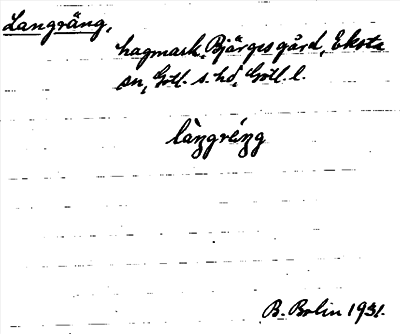 Langräng,
hagmark, Bjärges gård, Eksta
sn, Gotl. s. hd, Gotl. l.
làŋgréŋg
B. Bolin 1931.